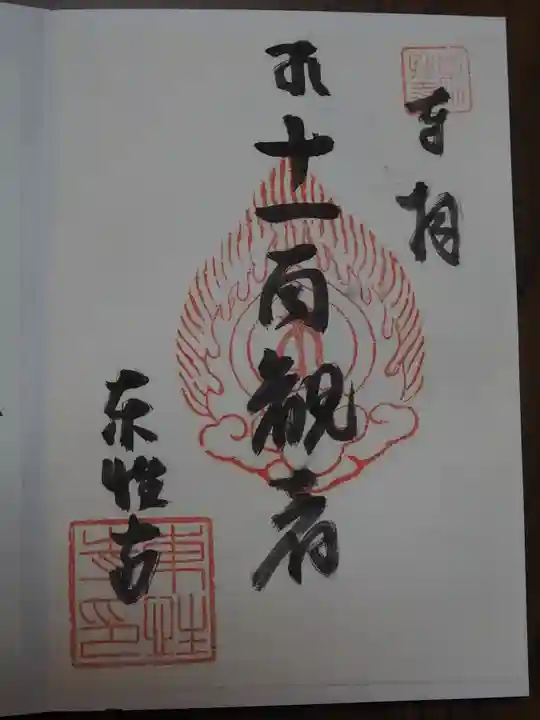 奉拝
不十一面観音
東性寺
東性寺印